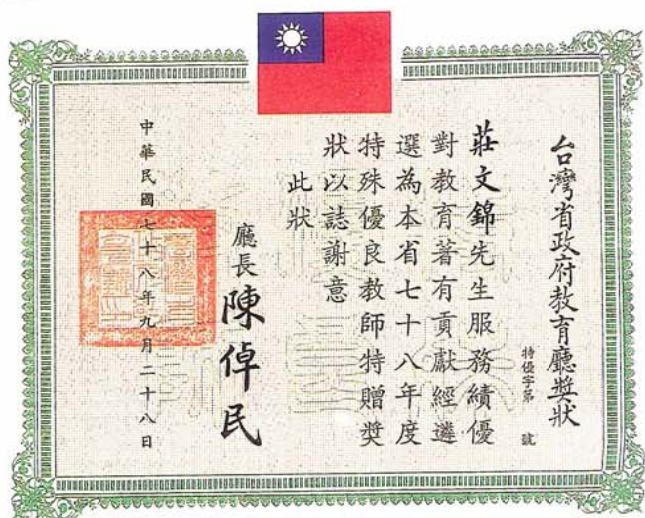 台灣省政府教育廳獎狀
特優字第　號
莊文錦先生服務績優
對教育著有貢獻經遴
選為本省七十八年度
特殊優良教師特贈獎
狀以誌謝意
此狀
廳長陳倬民
中華民國七十八年九月二十八日